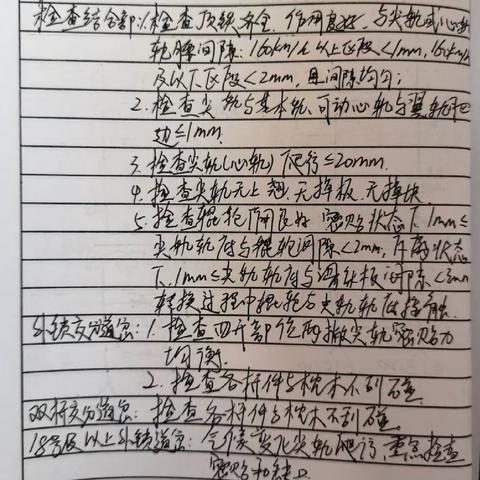 检查结合部:1.检查顶铁齐全、作用良好,与尖轨或心轨
轨腰间隙:160km/h以上区段<1mm,160km/h
及以下区段<2mm,且间隙均匀;
2.检查尖轨与基本轨、可动心轨与翼轨肥
边≤1mm.
3.检查尖轨(心轨)爬行≤20mm.
4.检查尖轨无上翘、无掉板、无掉块.
5.检查辊轮作用良好 密贴状态下1mm≤
尖轨轨底与辊轮间隙<2mm,斥离状态
下,1mm≤尖轨轨底与滑床板间隙<3mm
转换过程中辊轮与尖轨轨底接触.
外锁交分道岔:1.检查四开部位两根尖轨密贴力
均衡.
2.检查各杆件与枕木不别碰.
双杆交分道岔:检查各杆件与枕木不别碰.
18号及以上外锁道岔:今外美变化尖轨爬行,重点检查
密贴和缺口.